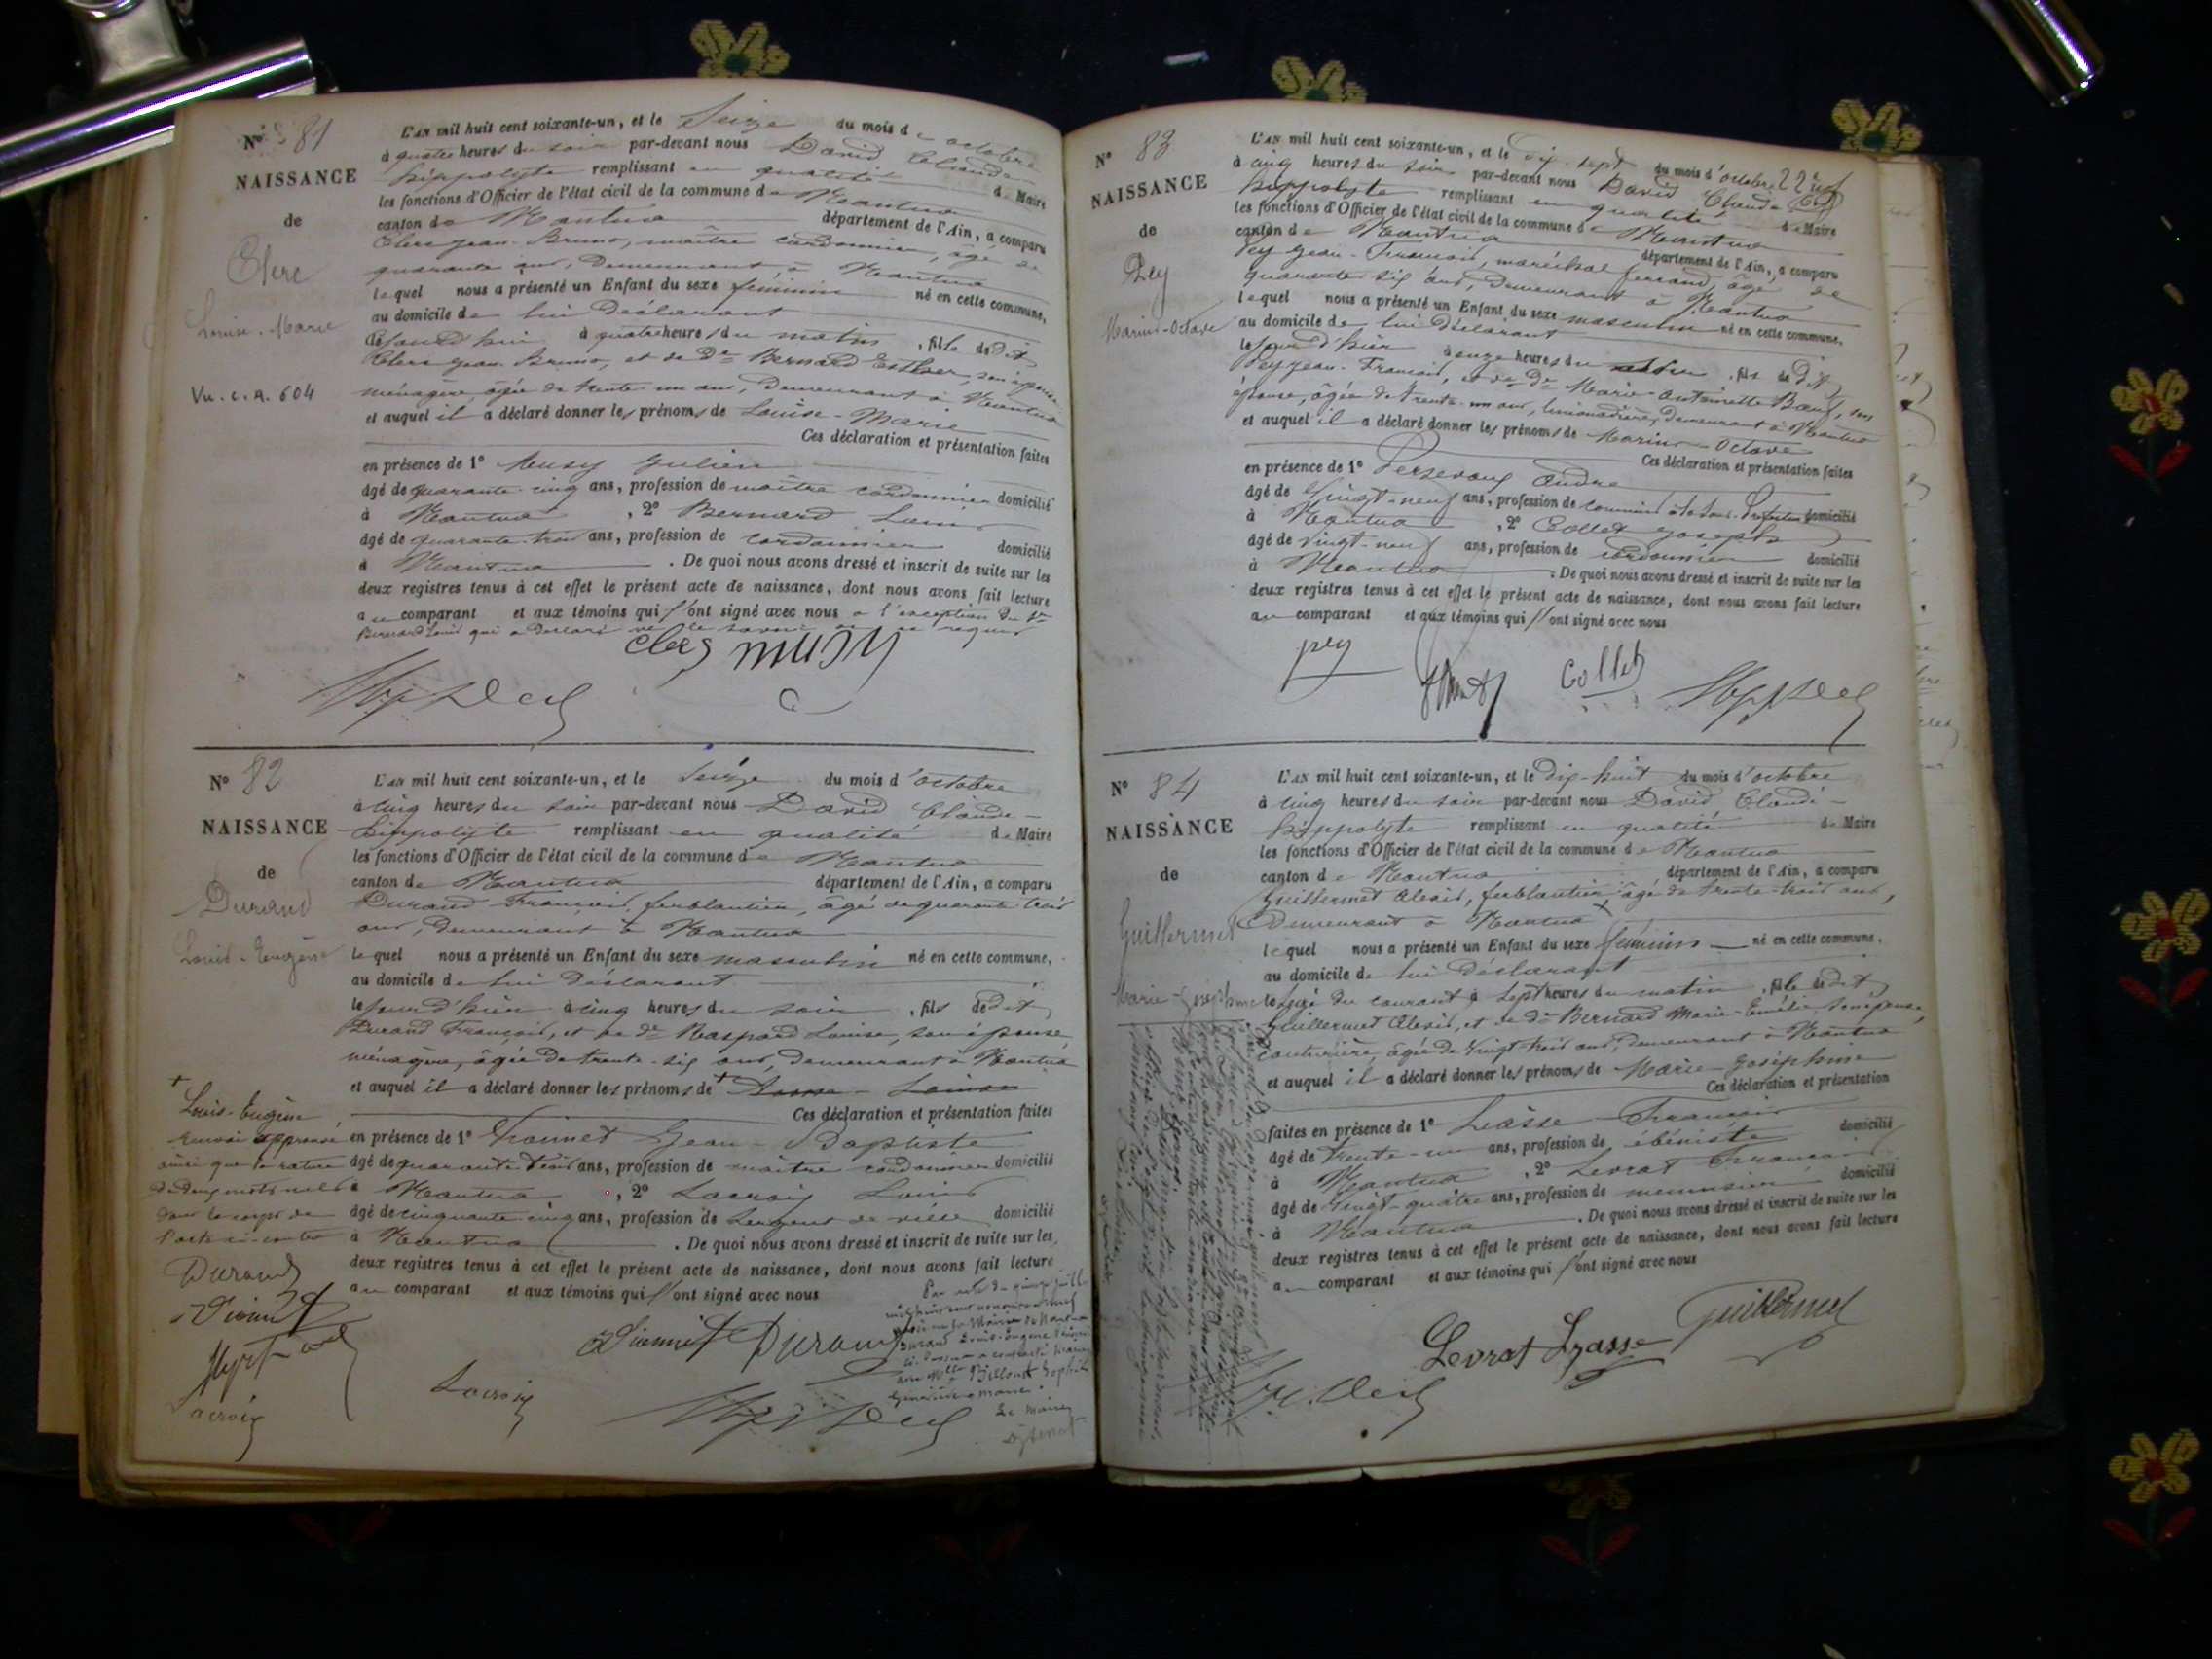 N° 81
NAISSANCE
de
Clerc
Louise-Marie
Vu. C. A. 604
L'AN mil huit cent soixante-un, et le Seize du mois d'octobre
à quatre heures du soir par-devant nous David Claude
hippolyte remplissant en qualité de Maire
les fonctions d'Officier de l'état civil de la commune de Nantua
canton de Nantua département de l'Ain, a comparu
Clerc Jean-Bruno, maître cordonnier, âgé de
quarante ans, demeurant à Nantua
lequel nous a présenté un Enfant du sexe féminin né en cette commune,
au domicile de lui déclarant
à quatre heures du matin, fille dudit
Clerc Jean-Bruno, et de De Bernard Esther, son épouse
ménagère, âgée de trente un ans, demeurant à Nantua
et auquel il a déclaré donner les prénoms de Louise-Marie
Ces déclaration et présentation faites
en présence de 1° Musy Julien
âgé de quarante-cinq ans, profession de maître cordonnier domicilié
à Nantua, 2° Bernard Louis
âgé de quarante-trois ans, profession de cordonnier domicilié
à Nantua. De quoi nous avons dressé et inscrit de suite sur les
deux registres tenus à cet effet le présent acte de naissance, dont nous avons fait lecture
au comparant et aux témoins qui ont signé avec nous à l'exception du Sr
Bernard Louis qui a déclaré ne le savoir de ce requis
Clerc musy
N° 82
NAISSANCE
de
Durand
Louis-Eugène
L'AN mil huit cent soixante-un, et le Seize du mois d'octobre
à cinq heures du soir par-devant nous David Claude-
hippolyte remplissant en qualité de Maire
les fonctions d'Officier de l'état civil de la commune de Nantua
canton de Nantua département de l'Ain, a comparu
Durand François, ferblantier, âgé de quarante trois
ans, demeurant à Nantua
lequel nous a présenté un Enfant du sexe masculin né en cette commune,
au domicile de lui déclarant
le jour d'hier à cinq heures du soir, fils dudit
Durand François, et de de Raspard Louise, son épouse,
ménagère, âgée de trente-six ans, demeurant à Nantua
et auquel il a déclaré donner les prénoms de +
Ces déclaration et présentation faites
en présence de 1° Jean-Baptiste
âgé de quarante trois ans, profession de maître cordonnier domicilié
à Nantua, 2° Lacroix Louis
âgé de cinquante cinq ans, profession de Sergent de ville domicilié
à Nantua. De quoi nous avons dressé et inscrit de suite sur les
deux registres tenus à cet effet le présent acte de naissance, dont nous avons fait lecture
au comparant et aux témoins qui ont signé avec nous
+
Louis-Eugène
renvoi approuvé
ainsi que la rature
de deux mots nuls
dans le corps de
l'acte ci-contre
Durand
Lacroix
Durand
Lacroix
Le maire
N° 83
NAISSANCE
de
Pey
Marius-Octave
L'AN mil huit cent soixante-un, et le dix-sept du mois d'octobre
à cinq heures du soir par-devant nous David Claude
hippolyte remplissant en qualité de Maire
les fonctions d'Officier de l'état civil de la commune de Nantua
canton de Nantua département de l'Ain, a comparu
Pey Jean-François, maréchal ferrand, âgé de
quarante six ans, demeurant à Nantua
lequel nous a présenté un Enfant du sexe masculin né en cette commune,
au domicile de lui déclarant
le jour d'hier à onze heures du, fils dudit
Pey Jean-François, et de De Marie-Antoinette Bœuf, son
épouse, âgée de trente-un ans, limonadière, demeurant à Nantua
et auquel il a déclaré donner les prénoms de Marius-Octave
Ces déclaration et présentation faites
en présence de 1° André
âgé de vingt-neuf ans, profession de commis à la Sous-Préfecture domicilié
à Nantua, 2° Collet Joseph
âgé de vingt-neuf ans, profession de cordonnier domicilié
à Nantua. De quoi nous avons dressé et inscrit de suite sur les
deux registres tenus à cet effet le présent acte de naissance, dont nous avons fait lecture
au comparant et aux témoins qui ont signé avec nous
pey
Collet
N° 84
NAISSANCE
de
Guillermet
Marie-Joséphine
L'AN mil huit cent soixante-un, et le dix-huit du mois d'octobre
à cinq heures du soir par-devant nous David Claude-
hippolyte remplissant en qualité de Maire
les fonctions d'Officier de l'état civil de la commune de Nantua
canton de Nantua département de l'Ain, a comparu
Guillermet Alexis, ferblantier, âgé de trente-trois ans,
demeurant à Nantua
lequel nous a présenté un Enfant du sexe féminin né en cette commune,
au domicile de lui déclarant
le seize du courant à sept heures du matin, fille dudit
Guillermet Alexis, et de de Bernard Marie-Emélie, son épouse,
couturière, âgée de vingt trois ans, demeurant à Nantua
et auquel il a déclaré donner les prénoms de Marie-Joséphine
Ces déclaration et présentation
faites en présence de 1° Lasse François
âgé de trente-un ans, profession de ébéniste domicilié
à Nantua, 2° Levrat François
âgé de vingt-quatre ans, profession de menuisier domicilié
à Nantua. De quoi nous avons dressé et inscrit de suite sur les
deux registres tenus à cet effet le présent acte de naissance, dont nous avons fait lecture
au comparant et aux témoins qui ont signé avec nous
Levrat Lasse Guillermet